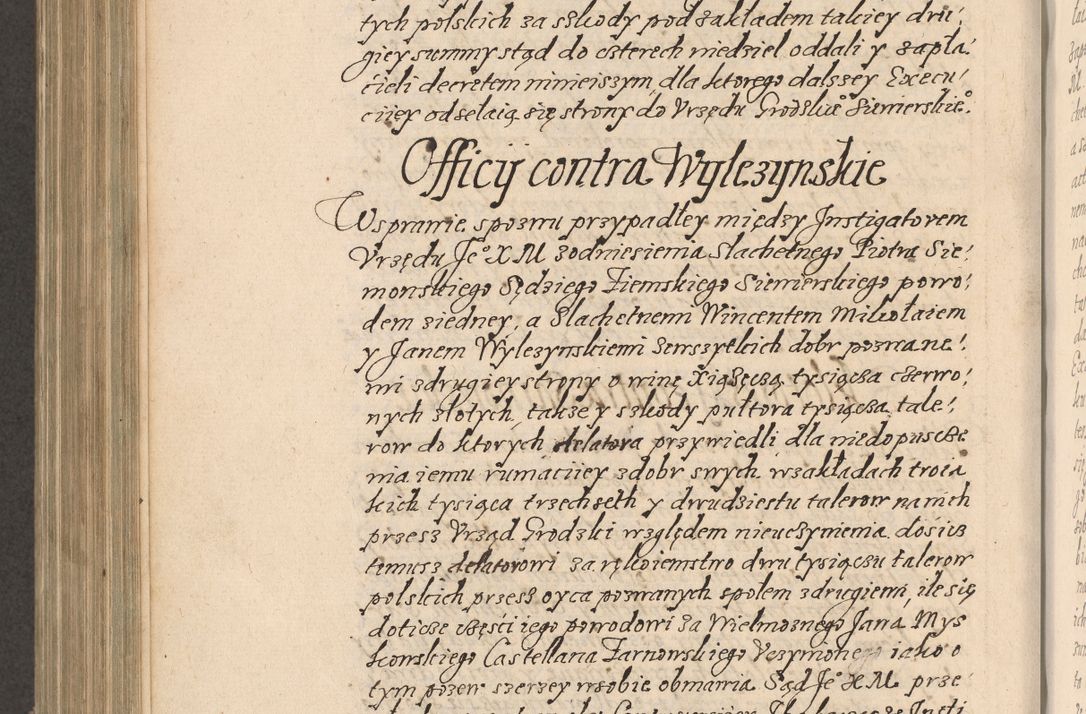 tych polskich za szkody pod zakładem takiey dru¦
giey summy stąd do czterech niedziel oddali y zapła¦
ćieli decretem ninieiszym, dla ktorego dalszey Execu¦
ciiey odselaią się strony do Vrzędu Grodzkie° Siewierskie°.
Officij contra Wylezynskie
W sprawie spozwu przypadłey między Instigatorem
Vrzędu Je° X M zodniesienia Slachetnego Piotra Sie¦
monskiego Sędziego Ziemskiego Siewierskiego powo¦
dem ziedney, a Slachetnemi Wincentem Mikołaiem
y Janem Wylezynskiemi Zewszytkich dobr pozwane¦
mi zdrugiey strony o winę Xiążęcą tysiącza czerwo¦
nych złotych, także y szkody pułtora tysiącza tale¦
row do ktorych delatora przywiedli dla niedopuscze
nia iemu rumaciiey zdobr swych wzakładach troia
kich tysiąca trzechseth y dwudziestu talerow na nich
przesz Vrząd Grodzki względem nieuczynienia dosicz
timusz delatorowi za rękoiemstwo dwu tysiączu talerow
polskich przesz oyca pozwanych społem zdrugiemi, ile się
doticze części iego powodowi za Wielmoznego Jana Mys
kowskiego Castellana Zarnowskiego Vczynionego iako o
tym pozew szerzey wsobie obmawia Sąd Je° X M prze¦